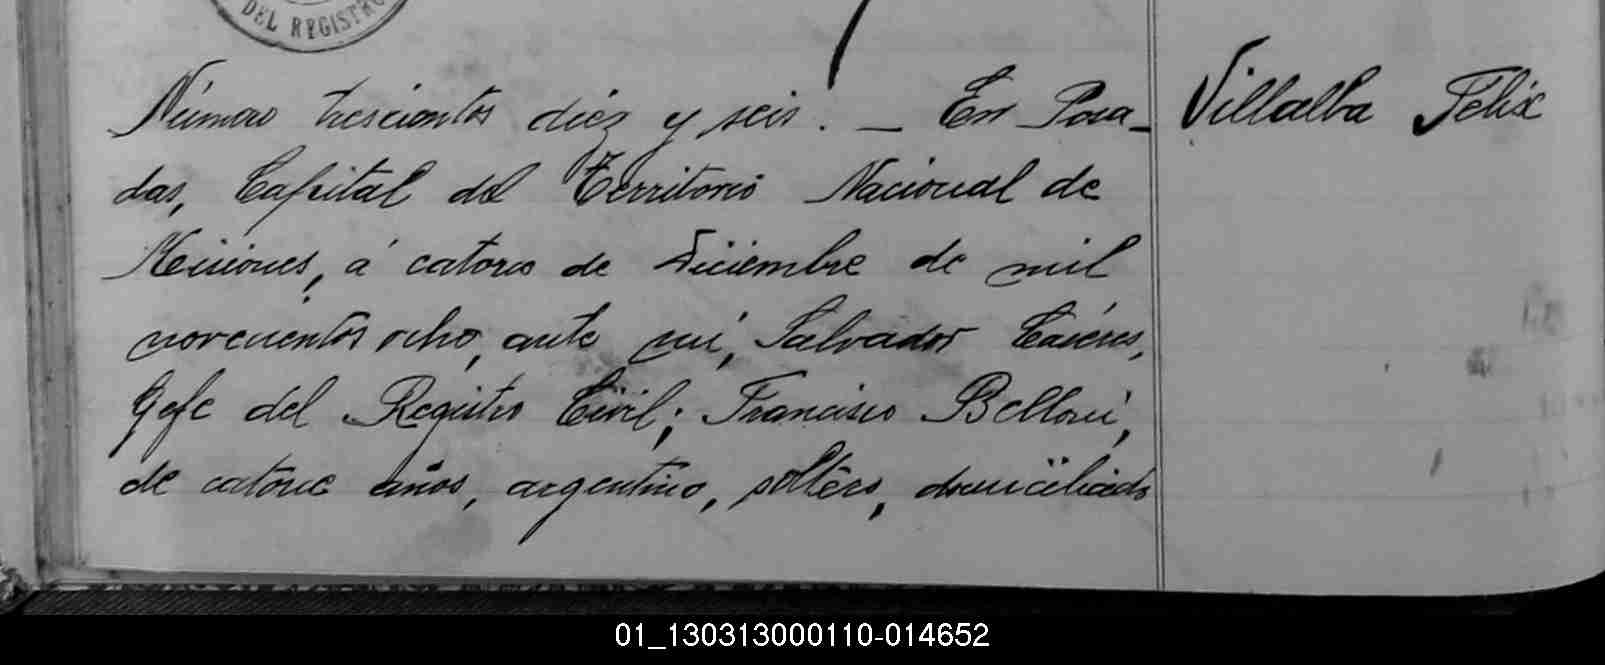 DEL REGISTRO
Número trescientos diez y seis. — En Posa-
das, Capital del Territorio Nacional de
Misiones, á catorce de Diciembre de mil
novecientos ocho, ante mi, Salvador Cáceres,
Gefe del Registro Civil; Francisco Belloni,
de catorce años, argentino, soltero, domiciliado
Villalba Felix
01_130313000110-014652